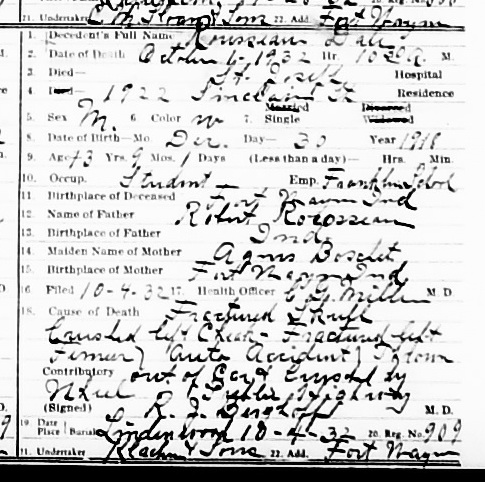 21. Undertaker C. M. Sloan & Son 22. Add. Fort Wayne
1. Decedent's Full Name Rousseau Dale
2. Date of Death October 1-1932 Hr. 10 A. M.
3. Died— St. Joseph Hospital
4. Died— 1922 Sinclair St Residence
5. Sex M. 6 Color W 7. Single Married Divorced Widowed
8. Date of Birth—Mo Dec. Day— 30 Year 1918
9. Age 13 Yrs. 9 Mos. 1 Days (Less than a day)— Hrs. Min.
10. Occup. Student — Emp. Franklin School
11. Birthplace of Deceased Fort Wayne Ind
12. Name of Father Robert Rousseau
13. Birthplace of Father Ind
14. Maiden Name of Mother Agnes
15. Birthplace of Mother Fort Wayne Ind
16. Filed 10-4-32 17. Health Officer C. G. Miller M. D.
18. Cause of Death Fractured Skull
Crushed left Chest - Fractured left
Femur) Auto Accident) Thrown
Contributory out of Car & Crushed by
Wheel Public Highway
(Signed) R. J. Berghoff M. D.
19. Date Place Burial Lindenwood 10-4-32 20. Reg. No. 909
21. Undertaker Klaehn & Sons 22. Add. Fort Wayne